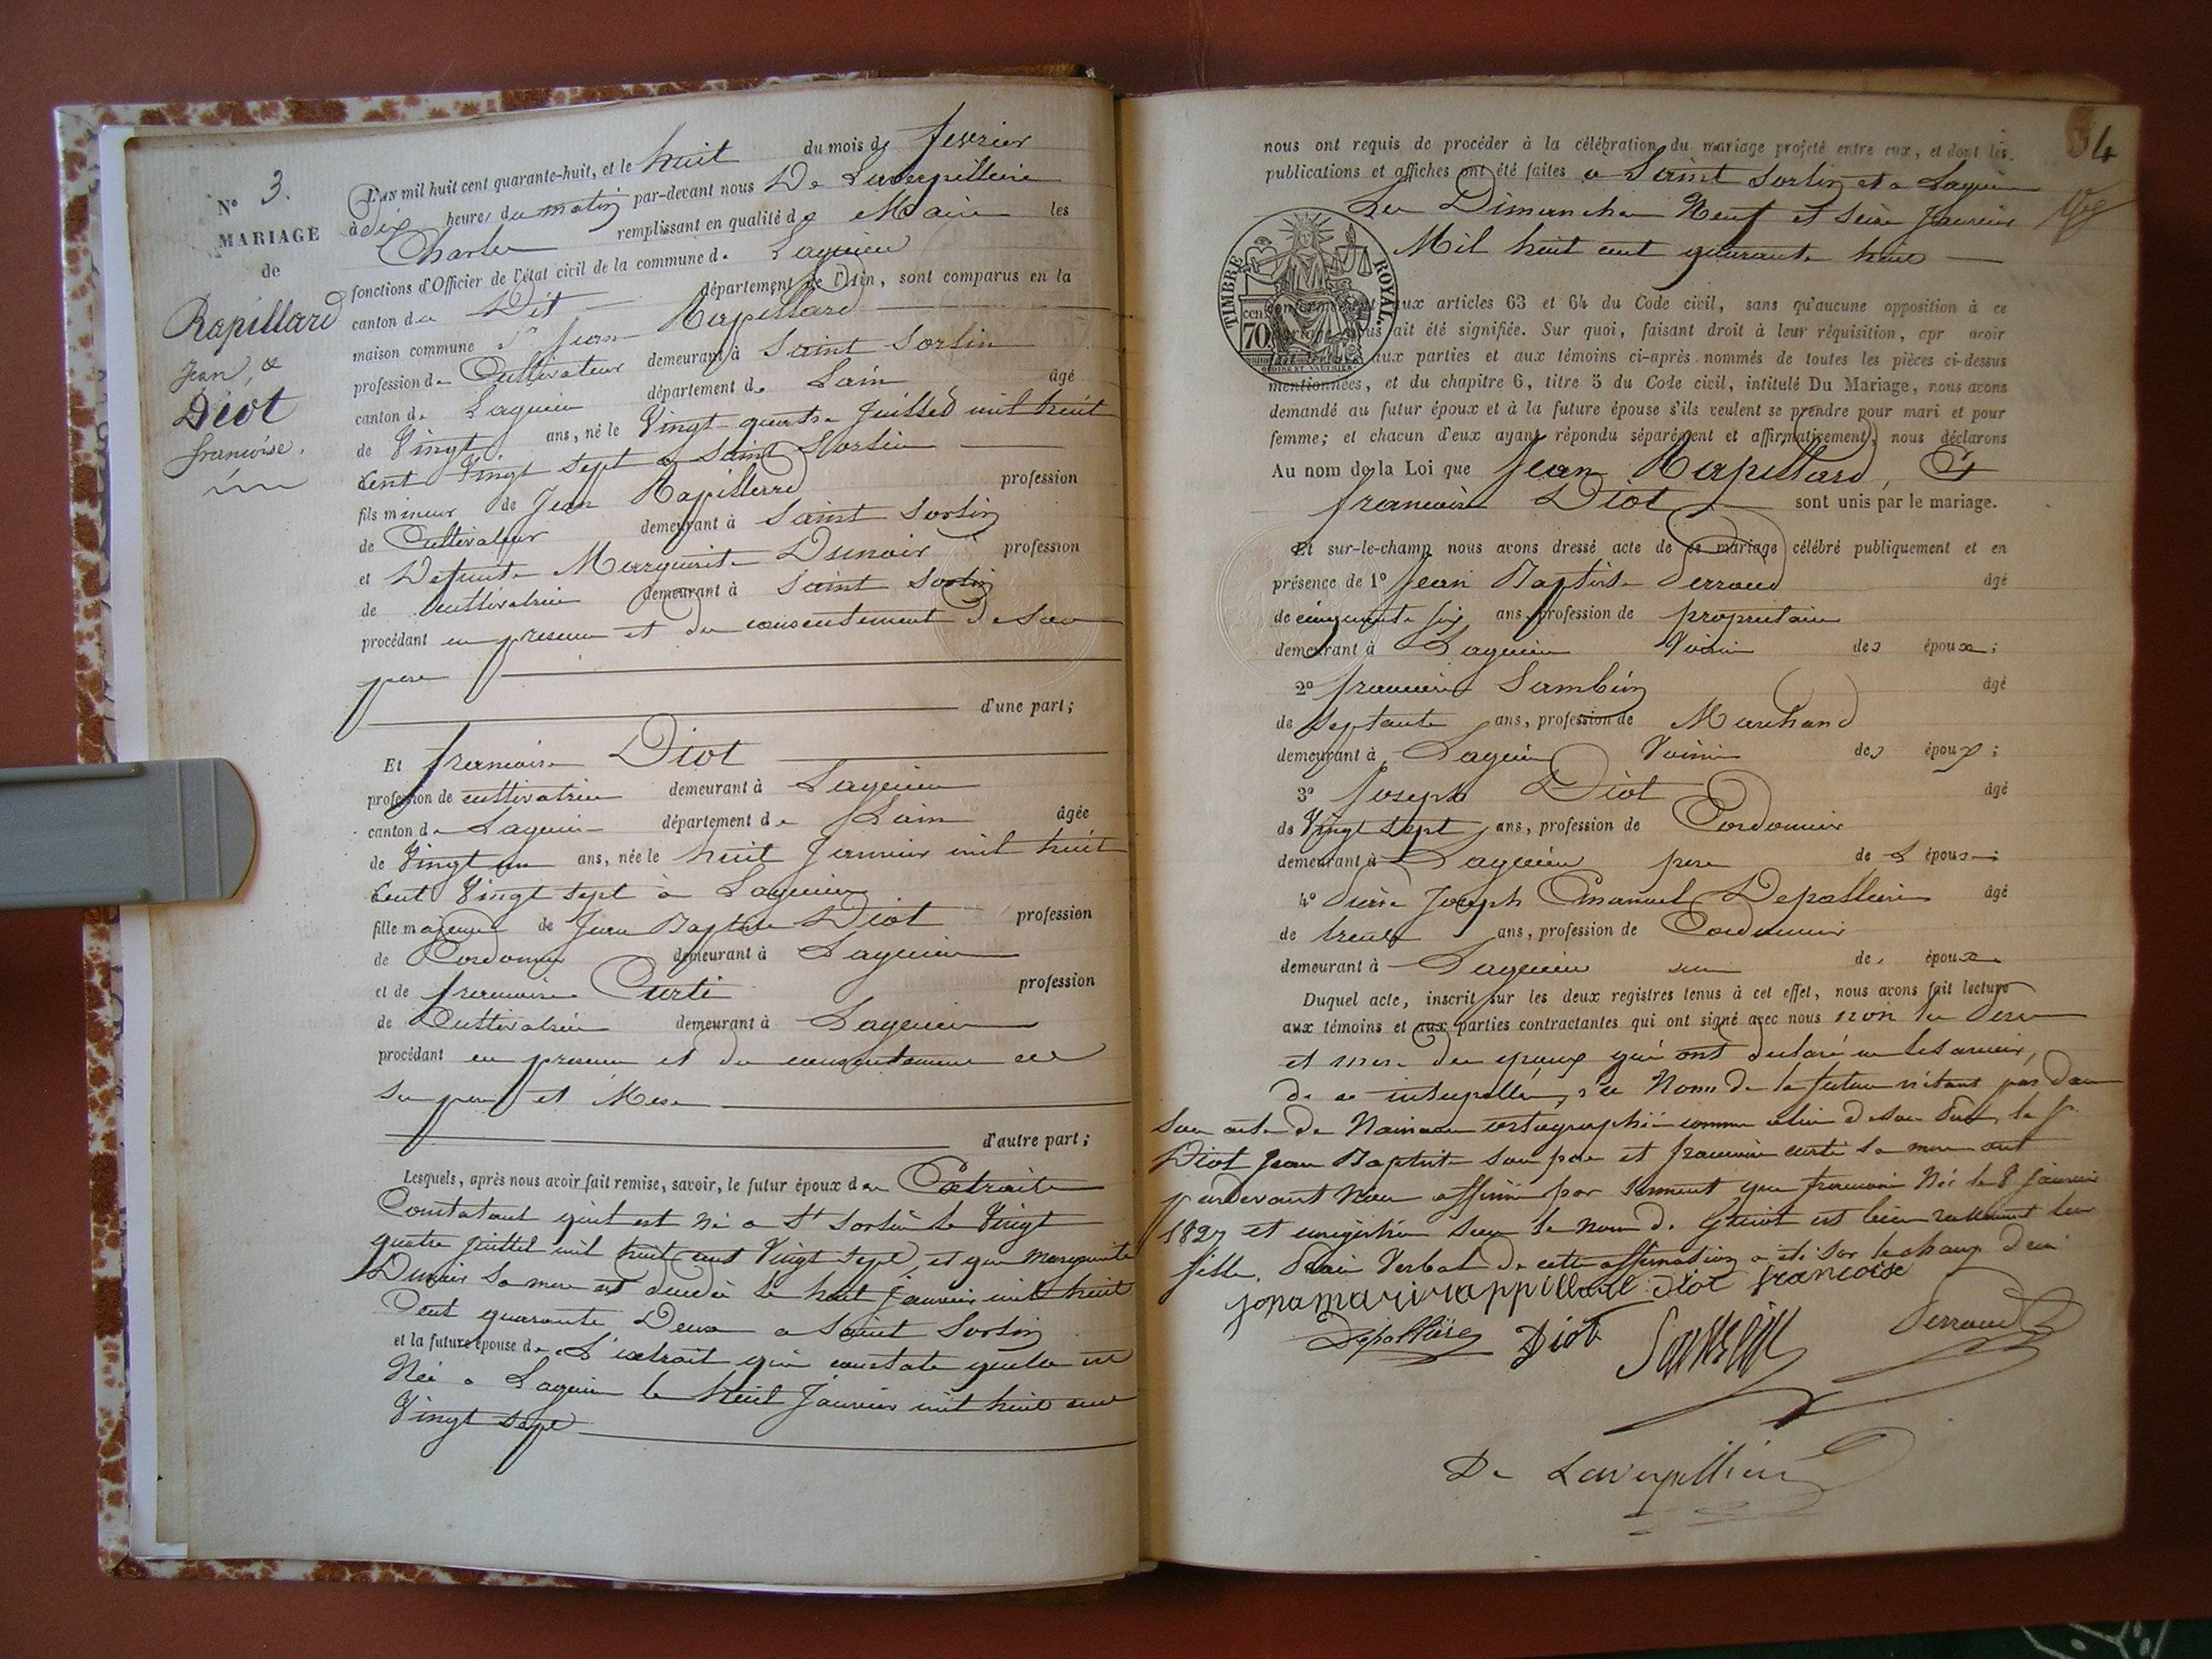 N° 3.
MARIAGE
de
Rapillard
Jean, &
Diot
francoise.
L'an mil huit cent quarante-huit, et le huit du mois de fevrier
à dix heures du matin par-devant nous De Laverpilliere
Charles remplissant en qualité de Maire les
fonctions d'Officier de l'état civil de la commune de Lagnieu
canton du Dit département de l'Ain, sont comparus en la
maison commune Sr Jean Rapillard
profession de Cultivateur demeurant à Saint Sorlin
canton de Lagnieu département de Lain âgé
de Vingt ans, né le Vingt quatre Juillet mil huit
Cent Vingt sept a Saint Sorlin
fils mineur de Jean Rapillard profession
de Cultivateur demeurant à Saint Sorlin
et Defunte Marguerite Dunoir profession
de Cultivatrice demeurant à Saint Sorlin
procédant en presence et du consentement de son
pere
d'une part;
Et francoise Diot
profession de cultivatrice demeurant à Lagnieu
canton de Lagnieu département de Lain âgée
de Vingt un ans, née le huit Janvier mil huit
Cent Vingt sept à Lagnieu
fille majeure de Jean Baptiste Diot profession
de Cordonnier demeurant à Lagnieu
et de francoise Curti profession
de Cultivatrice demeurant à Lagnieu
procédant en presence et du consentement de
Ses pere et Mere
d'autre part;
Lesquels, après nous avoir fait remise, savoir, le futur époux des Extraits
Constatant qu'il est Né a St Sorlin le Vingt
quatre juillet mil huit cent Vingt sept, et que Marguerite
Dunoir sa mere est decedée le huit Janvier mil huit
Cent quarante Deux a Saint Sorlin
et la future épouse de L'extrait qui constate qu'elle est
Née a Lagnieu le huit Janvier mil huit cent
Vingt sept
34
nous ont requis de procéder à la célébration du mariage projeté entre eux, et dont les
publications et affiches ont été faites a Saint Sorlin et a Lagnieu
Les Dimanches Neuf et Seize Janvier
Mil huit cent quarante huit
TIMBRE ROYAL.
cen. 70
conformément aux articles 63 et 64 du Code civil, sans qu'aucune opposition à ce
mariage nous ait été signifiée. Sur quoi, faisant droit à leur réquisition, apr avoir
fait lecture aux parties et aux témoins ci-après nommés de toutes les pièces ci-dessus
mentionnées, et du chapitre 6, titre 5 du Code civil, intitulé Du Mariage, nous avons
demandé au futur époux et à la future épouse s'ils veulent se prendre pour mari et pour
femme; et chacun d'eux ayant répondu séparément et affirmativement, nous déclarons
Au nom de la Loi que Jean Rapillard, Et
francoise Diot sont unis par le mariage.
Et sur-le-champ nous avons dressé acte de ce mariage célébré publiquement et en
présence de 1° Jean Baptiste Perraud âgé
de cinquante six ans, profession de proprietaire
demeurant à Lagnieu Voisin des époux;
2° francois Sambin âgé
de septante ans, profession de Marchand
demeurant à Lagnieu Voisin des époux;
3° Joseph Diot âgé
de Vingt sept ans, profession de Cordonnier
demeurant à Lagnieu frere de L épouse;
4° Pierre Joseph Emanuel Depolliere âgé
de trente ans, profession de Cordonnier
demeurant à Lagnieu des époux
Duquel acte, inscrit sur les deux registres tenus à cet effet, nous avons fait lecture
aux témoins et aux parties contractantes qui ont signé avec nous non les Peres
et mere des epoux qui ont declaré ne le savoir,
de ce interpellés, & le Nom de la future n'étant pas dans
son acte de Naissance ortographié comme celui de son Pere, le Sr
Diot Jean Baptiste son père et francoise curti sa mere ont
pardevant Nous affirmé par serment que francoise Née le 8 Janvier
1827 et enregistrée sous le nom de Guiot est bien réellement leur
fille. Procès Verbal de cette affirmation a été sur le champ
jonamarirappillard diot francoise
Depolliere Diot Sambin Perraud
De Laverpilliere